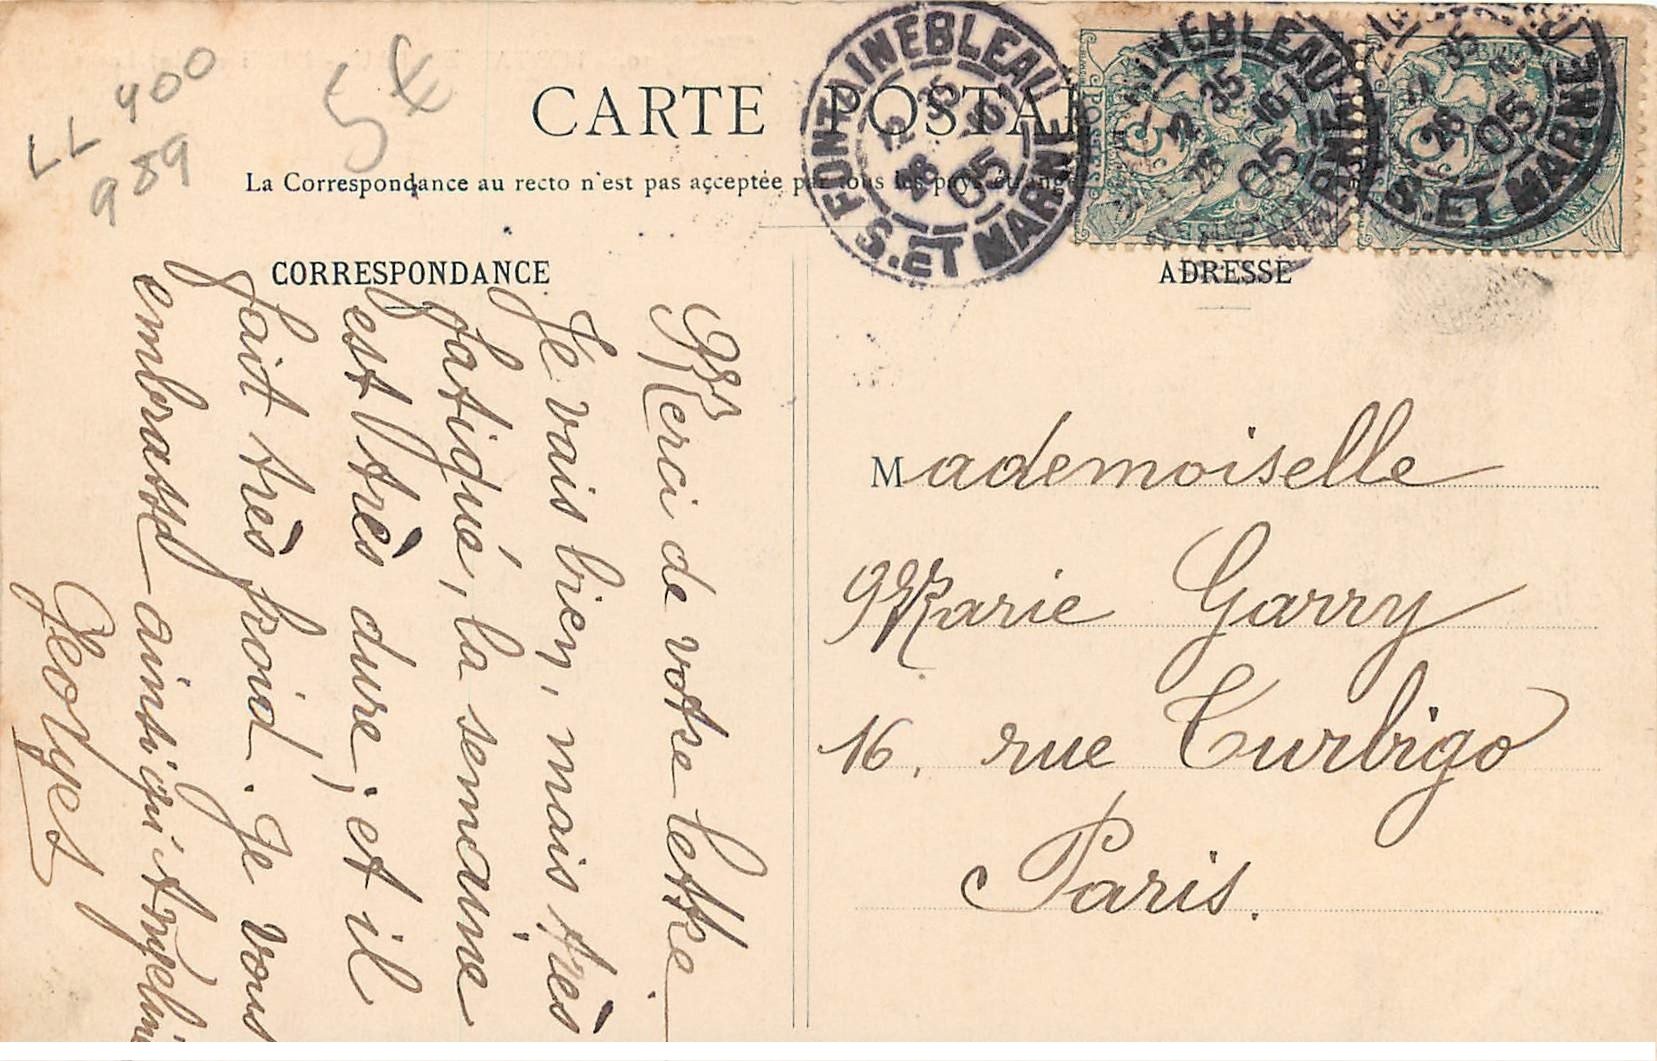 LL 400
989
5€
CARTE POSTALE
La Correspondance au recto n'est pas acceptée par tous les pays étrangers
FONTAINEBLEAU
S. ET MARNE
12 35
28 - 10
05
FONTAINEBLEAU
MARNE
12 35
28 - 10
05
S. ET MARNE
35
28
05
POSTES
5
5
CORRESPONDANCE
Merci de votre lettre.
Je vais bien, mais très
fatigué, la semaine
est très dure, et il
fait très froid. Je vous
embrasse ainsi qu'Angelin
Georges
ADRESSE
Mademoiselle
Marie Garry
16, rue Turbigo
Paris.